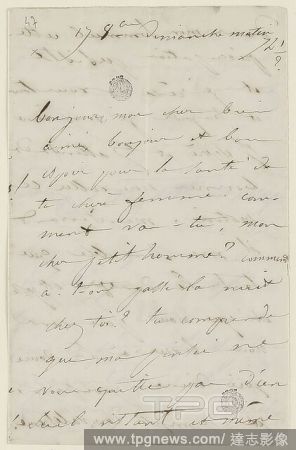 47
17 9bre Dimanche matin
bonjour mon cher bien
aimé bonjour et bon
espoir pour la santé de
ta chère femme. Com-
ment va-tu, mon
cher petit homme? comment
a-t-on passé la nuit
chez toi? tu comprends
que ma pensée ne
vous quitte pas d'un
seul instant et même
www.tpgnews.com/達志影像